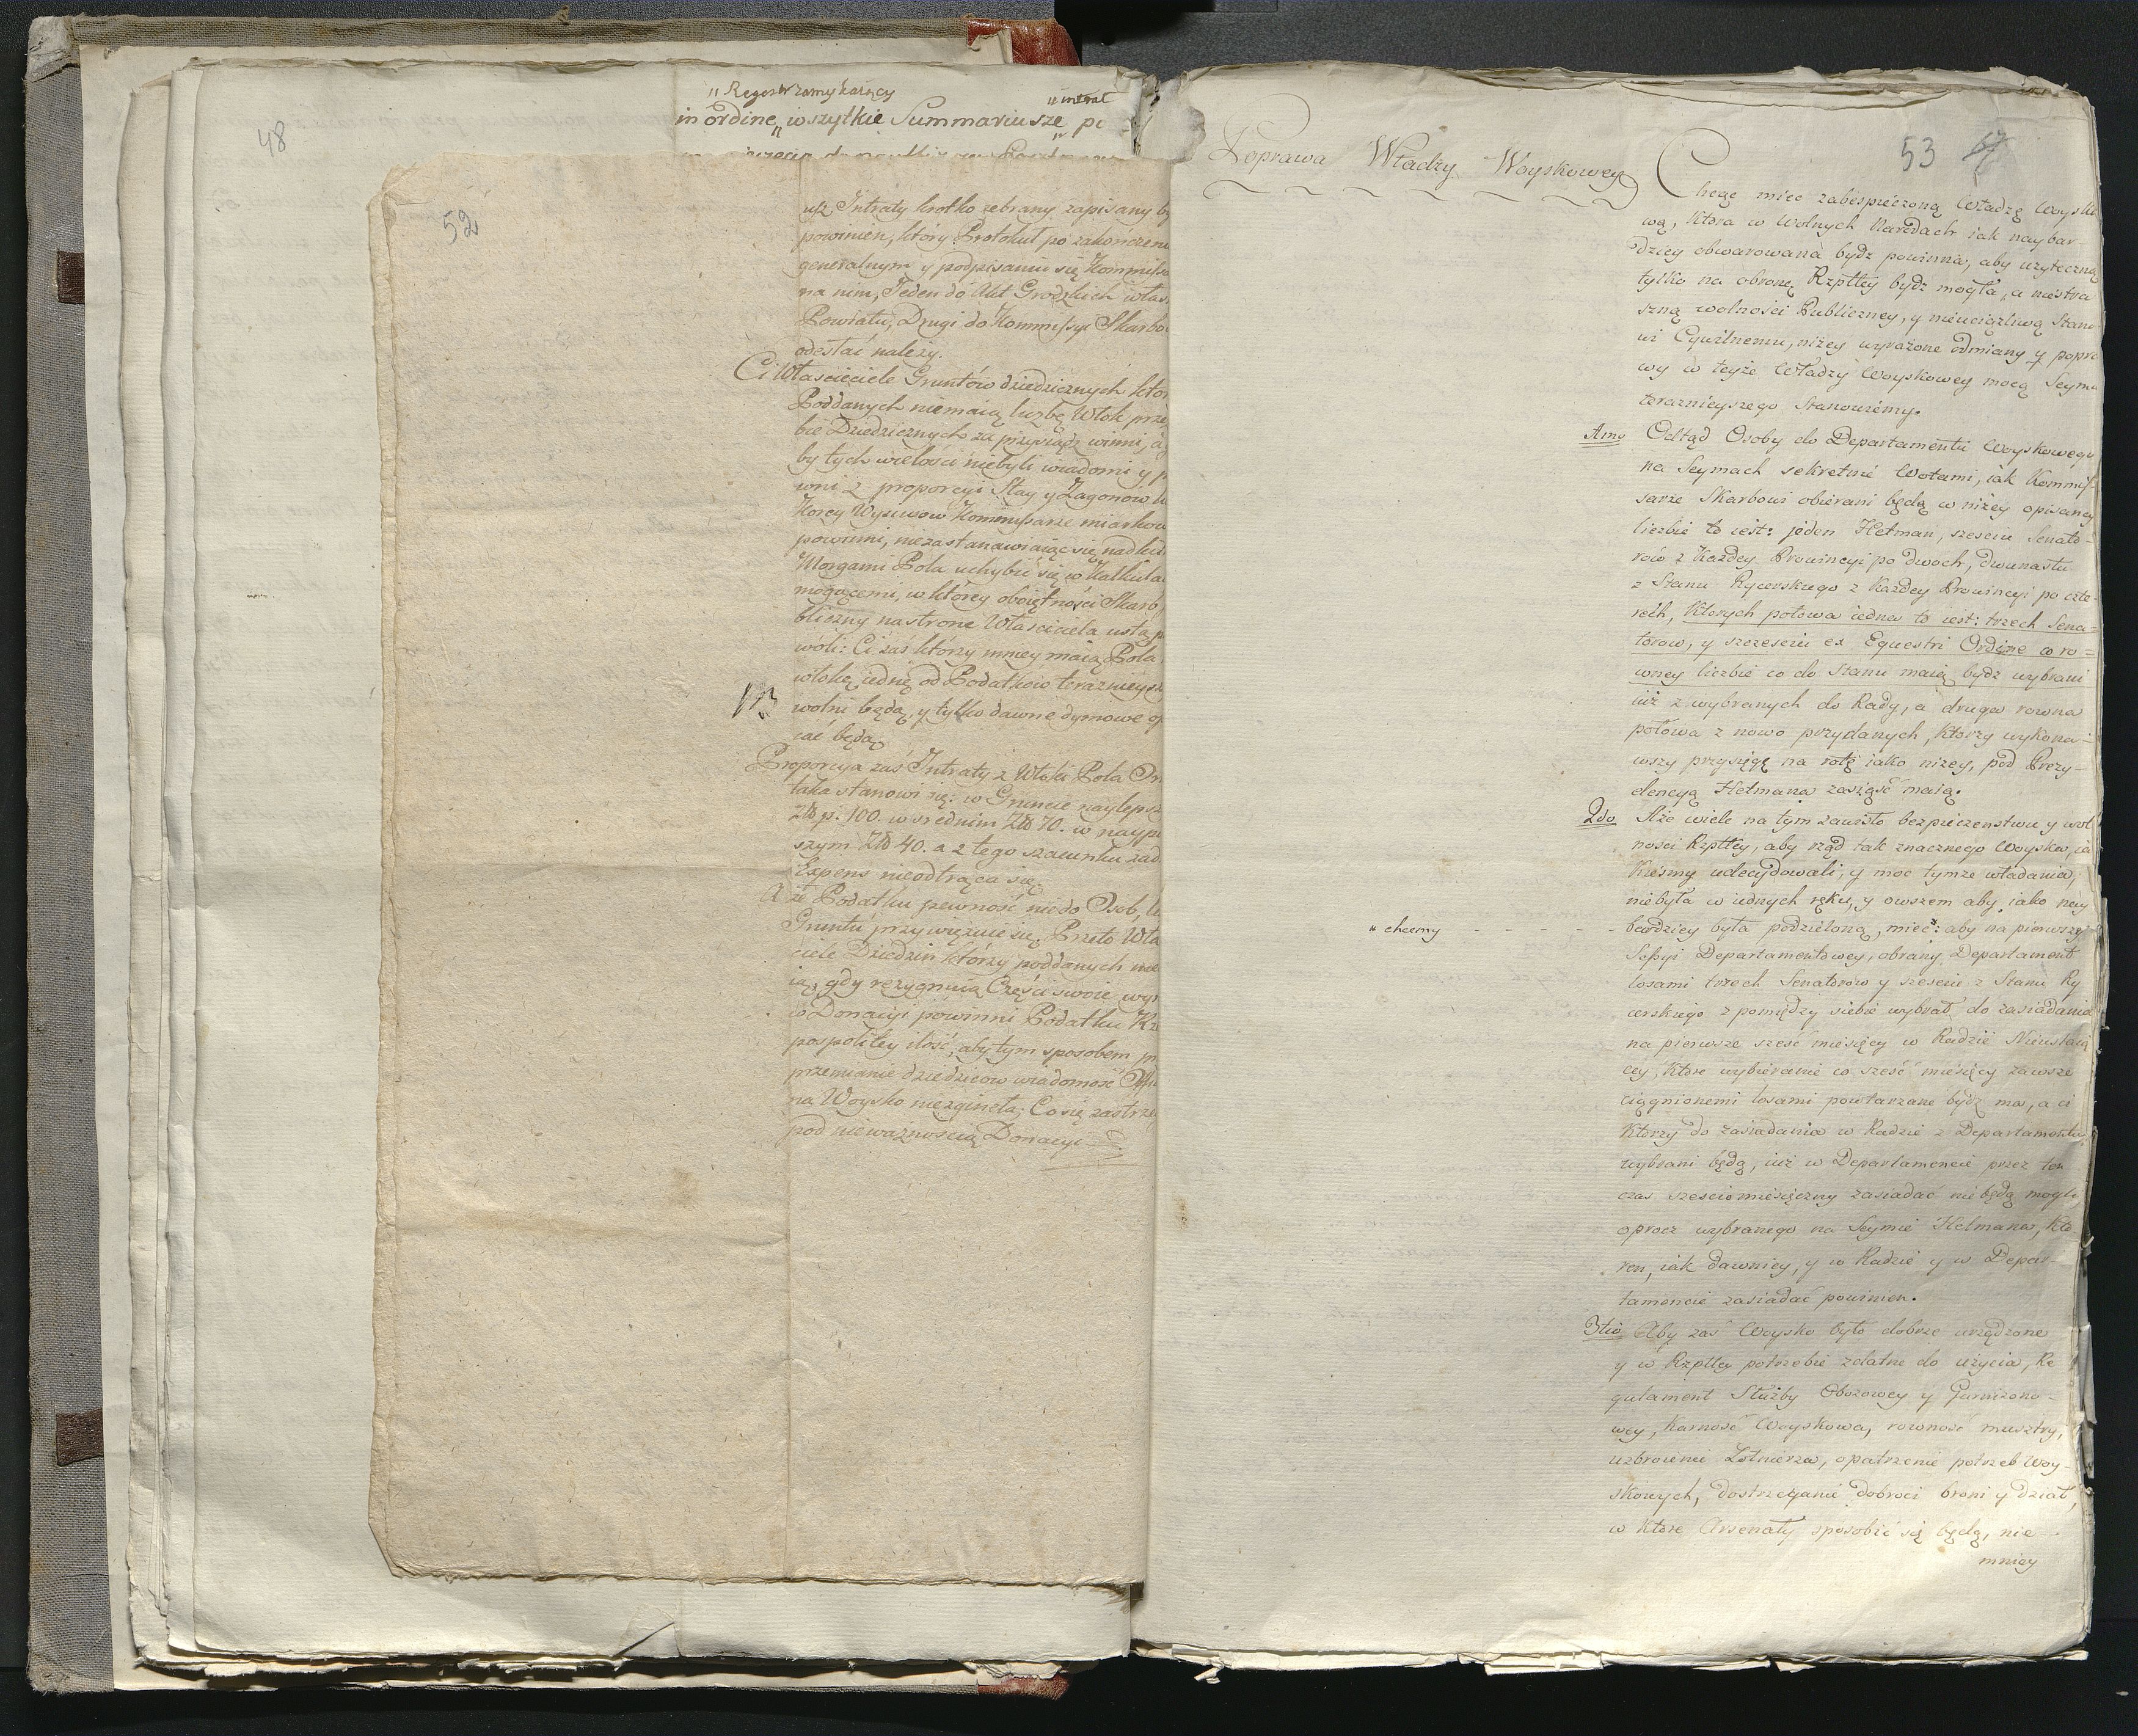 48
„ Regestr zamykaiący
„ intrat
in ordine „ wszytkie Summariusze
52
usz Intraty krotko zebrany zapisany
powinien, który Protokuł po zakończeniu
generalnym y podpisaniu się
na nim, Jeden do Akt Grodzkich
Powiatu, Drugi do Kommissyi
odesłać należy.
Ci Własciciele Gruntów dziedzicznych
Poddanych niemaią liczbę Włok
Dziedzicznych za przysiądz winni,
by tych wielości niebyli wiadomi y
wni z proporcyi Stay y Zagonow
Korcy Wysiwow Kommissarze
powinni, niezastanawiaiąc się nad
Morgami Pola uchybić się w
mogącemi, w którey oboiętności Skarb
bliczny na stronę Własciciela
woli: Ci zaś którzy mniey maią Pola
włokę iednę od Podatkow
wolni będą, y tylko dawne dymowe
cać będą
Proporcya zaś Intraty z Włoki Pola
taka stanowi się: w Gruncie
Złł p: 100. w srednim Złł 70. w
szym Złł 40. a z tego szacunku
Expens nieodtrąca się.
A że Podatku pewność nie do Osob,
Gruntu przywięzuie się, Przeto
ciele Dziedzin którzy poddanych
ią, gdy rezygnuią Części swoie
w Donacyi powinni Podatku
pospolitey ilość, aby tym sposobem
przemianie dziedzicow wiadomość
na Woysko niezgineła; Co się
pod nieważnością Donacyi
53
Poprawa Władzy Woyskowey
Chcąc miec zabespieczoną Władzę
wą, ktora w Wolnych Narodach iak naybar-
dziey obwarowana bydz powinna, aby uzyteczną
tylko na obronę Rzptley bydz mogła, a niestra
szną wolności Publiczney, y nieuciązliwą
wi Cywilnemu, nizey wyrażone odmiany y
wy w teyże Władzy Woyskowey mocą
teraznieyszego Stanowiemy.
Odtąd Osoby do Departamentu Woyskowego
na Seymach sekretnie Wotami, iak Kommis-
sarze Skarbowi obierani będą w niżey opisaney
liczbie to iest: jeden Hetman, szesciu Senato-
row z Każdey Prowincyi po dwoch, dwunastu
z Stanu Rycerskiego z każdey Prowincyi po czte-
rech, ktorych połowa iedna to iest: trzech Sena-
torow, y szczesciu ex Equestri Ordine w ro=
wney liczbie co do Stanu maią bydz wybrani
iuż z wybranych do Rady, a druga rowna
połowa z nowo przydanych, ktorzy wykona-
wszy przysięgę na rotę iako nizey, pod Prezy-
dencyą Hetmana zasiąść maią.
2do Aże wiele na tym zawisło bezpieczenstwu y wol
ności Rzptley, aby rząd tak znacznego Woyska,
kieśmy udecydowali, y moc tymże władania,
niebyła w iednych ręku, y owszem aby iako nay
„ chcemy - - - - - bardziey była podzieloną, mieć: aby na pierwszey
Sessyi Departamentowey, obrany Departament
losami trzech Senatorow y szesciu z Stanu Ry
cerskiego z pomiędzy siebie wybrał do zasiadania
na pierwsze sześć miesięcy w Radzie Nieustaią
cey, ktore wybieranie co sześć miesięcy zawsze
ciągnionemi losami powtarzane bydz ma, a ci
ktorzy do zasiadania w Radzie z Departamentu
wybrani będą, iuż w Departamencie przez ten
czas szesciomiesięczny zasiadać nie będą mogli,
oprocz wybranego na Seymie Hetmana, kto
ren, iak dawniey, y w Radzie y w Depar-
tamencie zasiadać powinien.
3tio Aby zaś Woysko było dobrze urządzone
y w Rzptley potrzebie zdatne do użycia, Re
gulament Służby Obozowey y Garnizono-
wey, karność Woyskowa, rowność musztry,
uzbroienie Żołnierza, opatrzenie potrzeb Woy-
skowych, dostrzeganie dobroci broni y dział,
w które Arsenały sposobić się będą, nie-
mniey